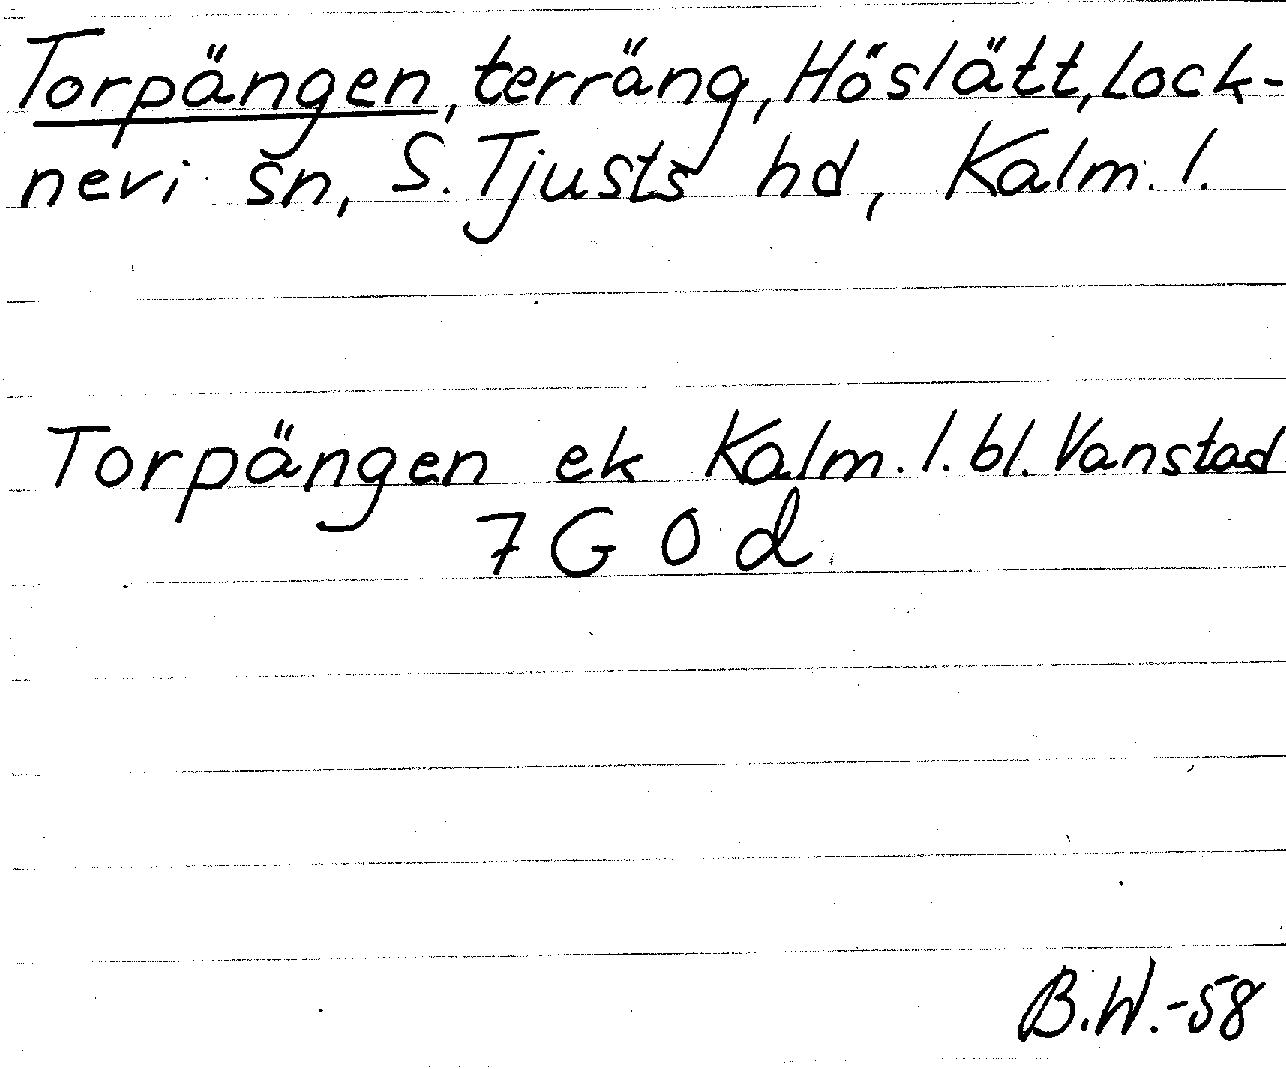 Torpängen, terräng, Höslätt, Lock-
nevi sn, S. Tjusts hd, Kalm. l.
Torpängen ek Kalm. l. bl. Vanstad
7 G 0 d
B.W.-58